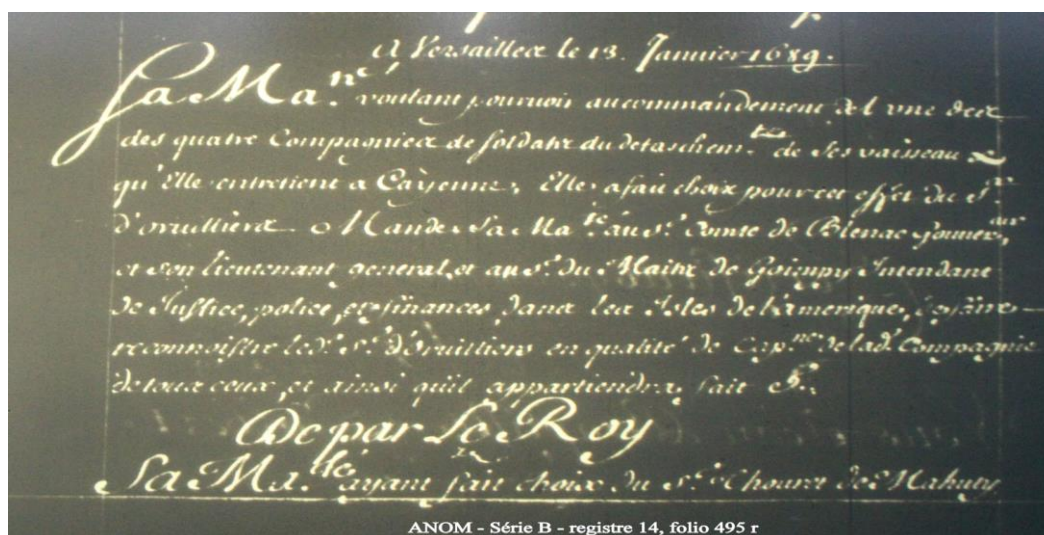 A Versailles le 13. Janvier 1689.
Sa Ma.té voulant pourvoir au commandement de l'une des
des quatre Compagnies de soldats du detachem.t de ses vaisseaux
qu'Elle entretient a Cayenne, Elle a fait choix pour cet effet du S.r
d'orvilliers Mande Sa Ma.té au S.r Comte de Blenac gouver.eur
et son lieutenant general, et au S.r du Maitz de Goimpy Intendant
de Justice, police, et finances dans les Isles de l'amerique, de faire
reconnoistre led. S.r d'orvilliers en qualité de Cap.ne de lad. Compagnie
de tous ceux, et ainsi qu'il appartiendra, fait &.
De par Le Roy
Sa Ma.té ayant fait choix du S.r Chouret de
ANOM - Série B - registre 14, folio 495 r